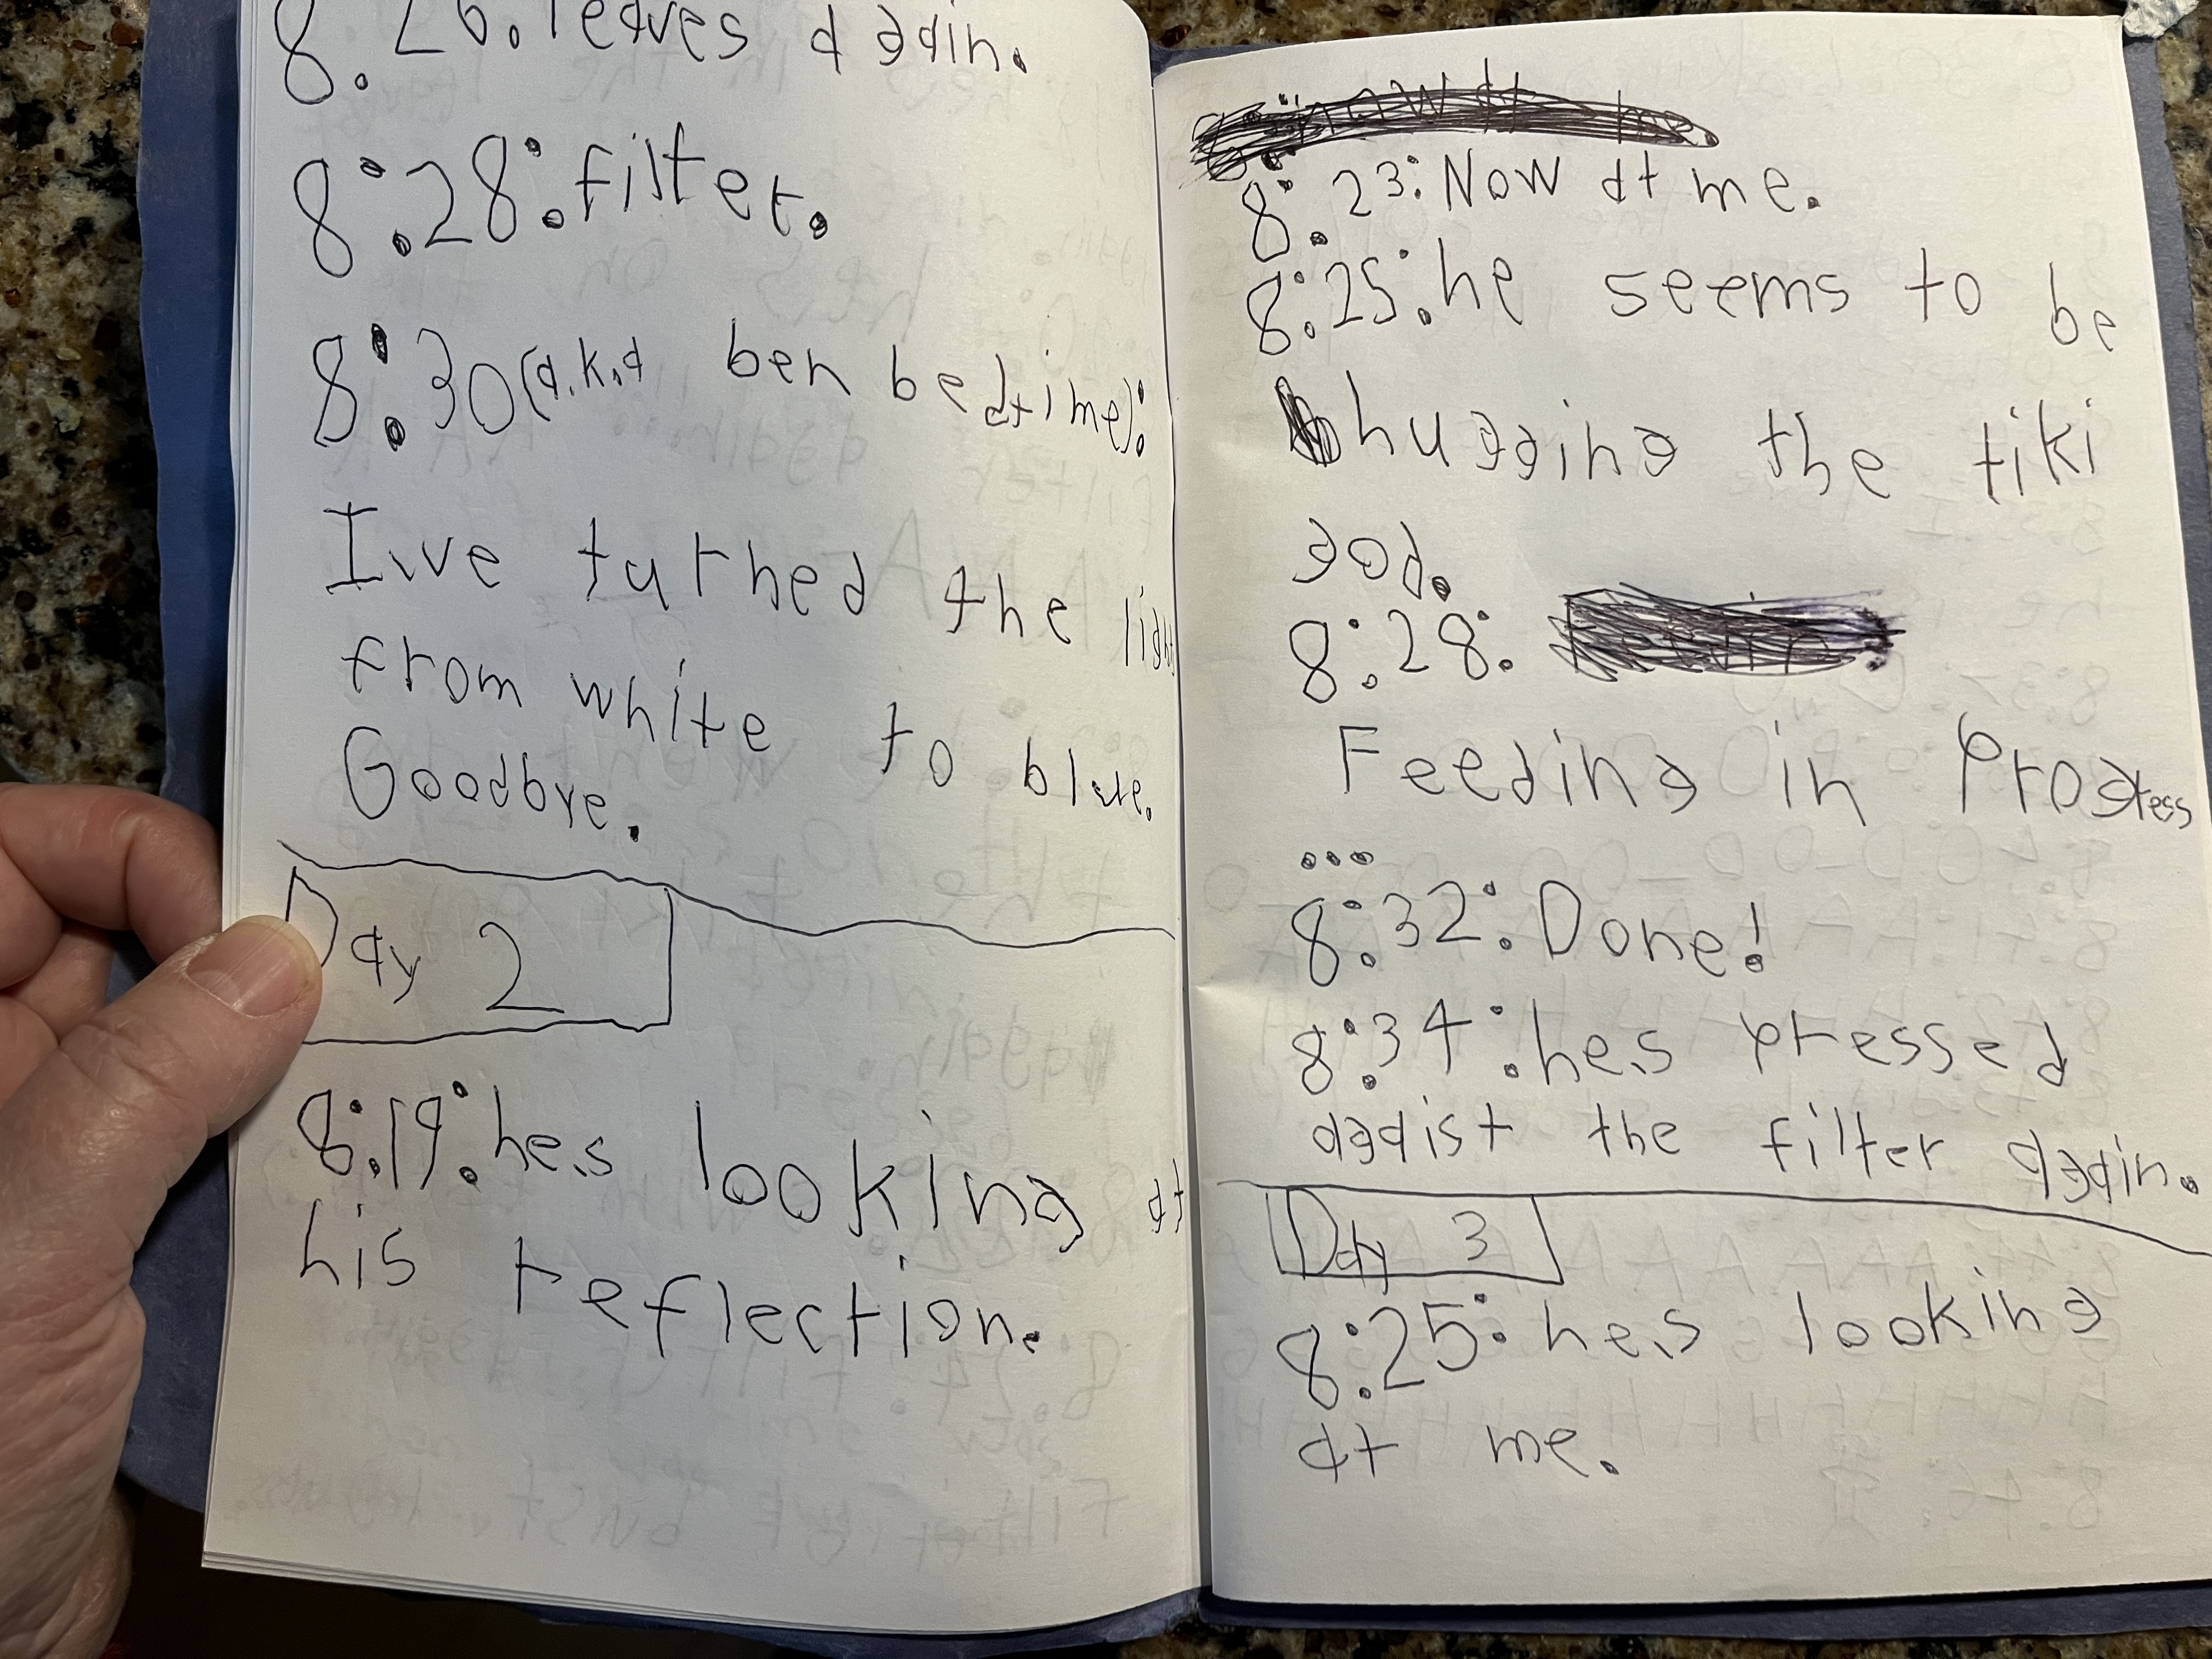 8:26: leaves again.
8:28: filter.
8:30 (a.k.a ben bedtime):
I've turned the light
from white to blue.
Goodbye.
Day 2
8:19: he's looking at
his reflection.
8:23: Now at me.
8:25: he seems to be
hugging the tiki
god.
8:28:
Feeding in Progress
...
8:32: Done!
8:34: he's pressed
agaist the filter again.
Day 3
8:25: he's looking
at me.